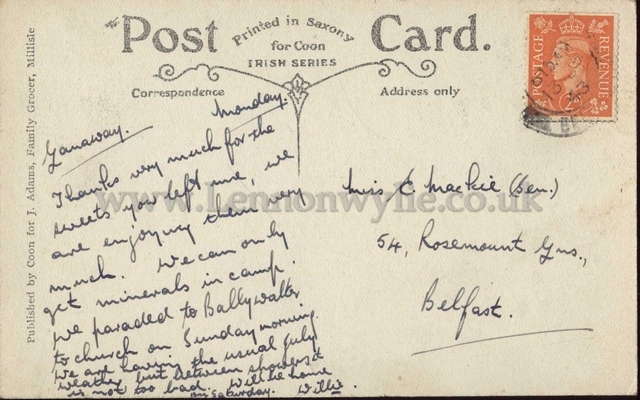 Post Card.
Printed in Saxony
for Coon
IRISH SERIES
Correspondence
Address only
POSTAGE
REVENUE
Published by Coon for J. Adams, Family Grocer, Millisle
Ganaway.
Monday.
Thanks very much for the
sweets you left me, we
are enjoying them very
much. We can only
get minerals in camp.
We paraded to Ballywalter
to church on Sunday morning.
We are having the usual July
weather but between showers it
is not too bad. Will be home
on Saturday. Willie.
Miss C. Mackie (Sen.)
54, Rosemount Gns.,
Belfast.
www.Lennonwylie.co.uk